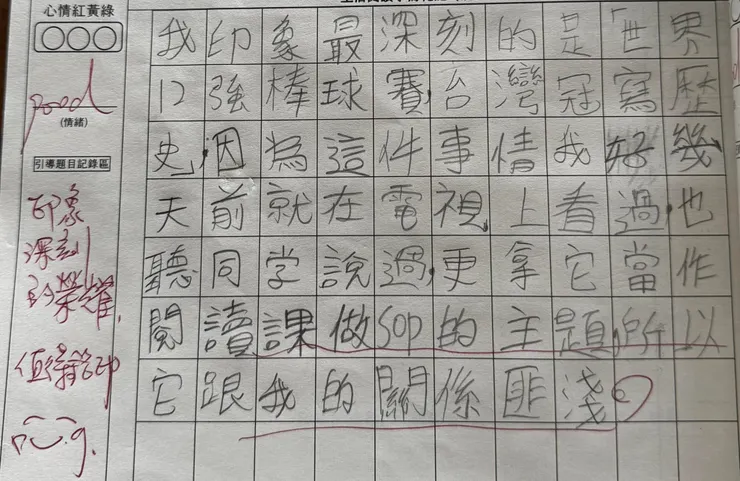 心情紅黃綠
good
(情緒)
引導題目記錄區
印象
深刻
的榮耀,
我印象最深刻的是「世界
12強棒球賽,台灣冠寫歷
史」,因為這件事情我好幾
天前就在電視上看過,也
聽同学說過,更拿它當作
閱讀課做SOP的主題,所以
它跟我的關係匪淺。